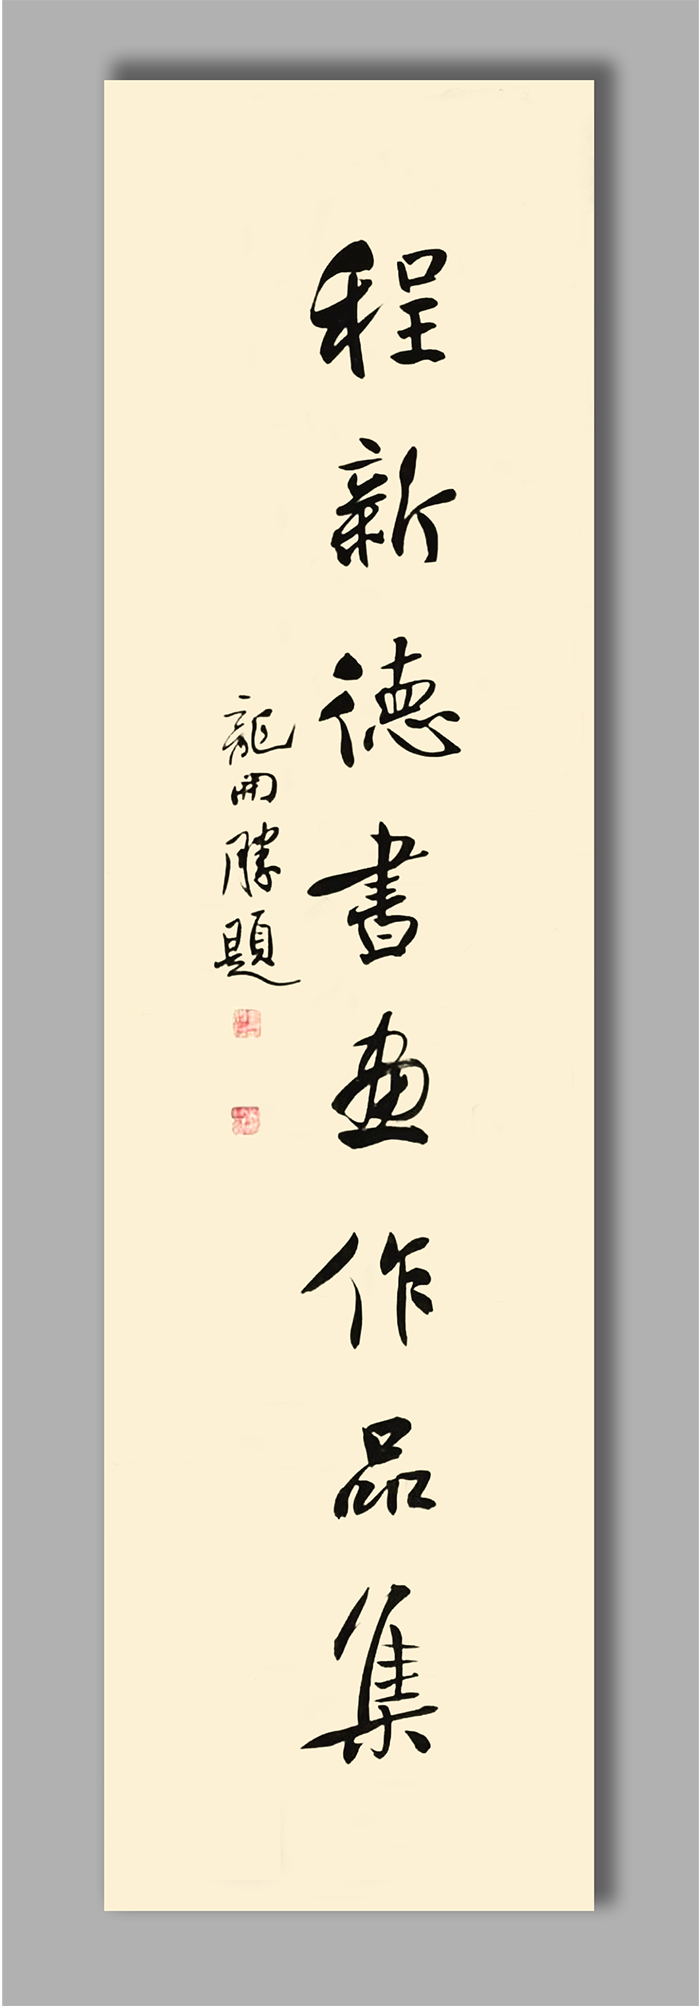 程新德書画作品集
龍開勝題